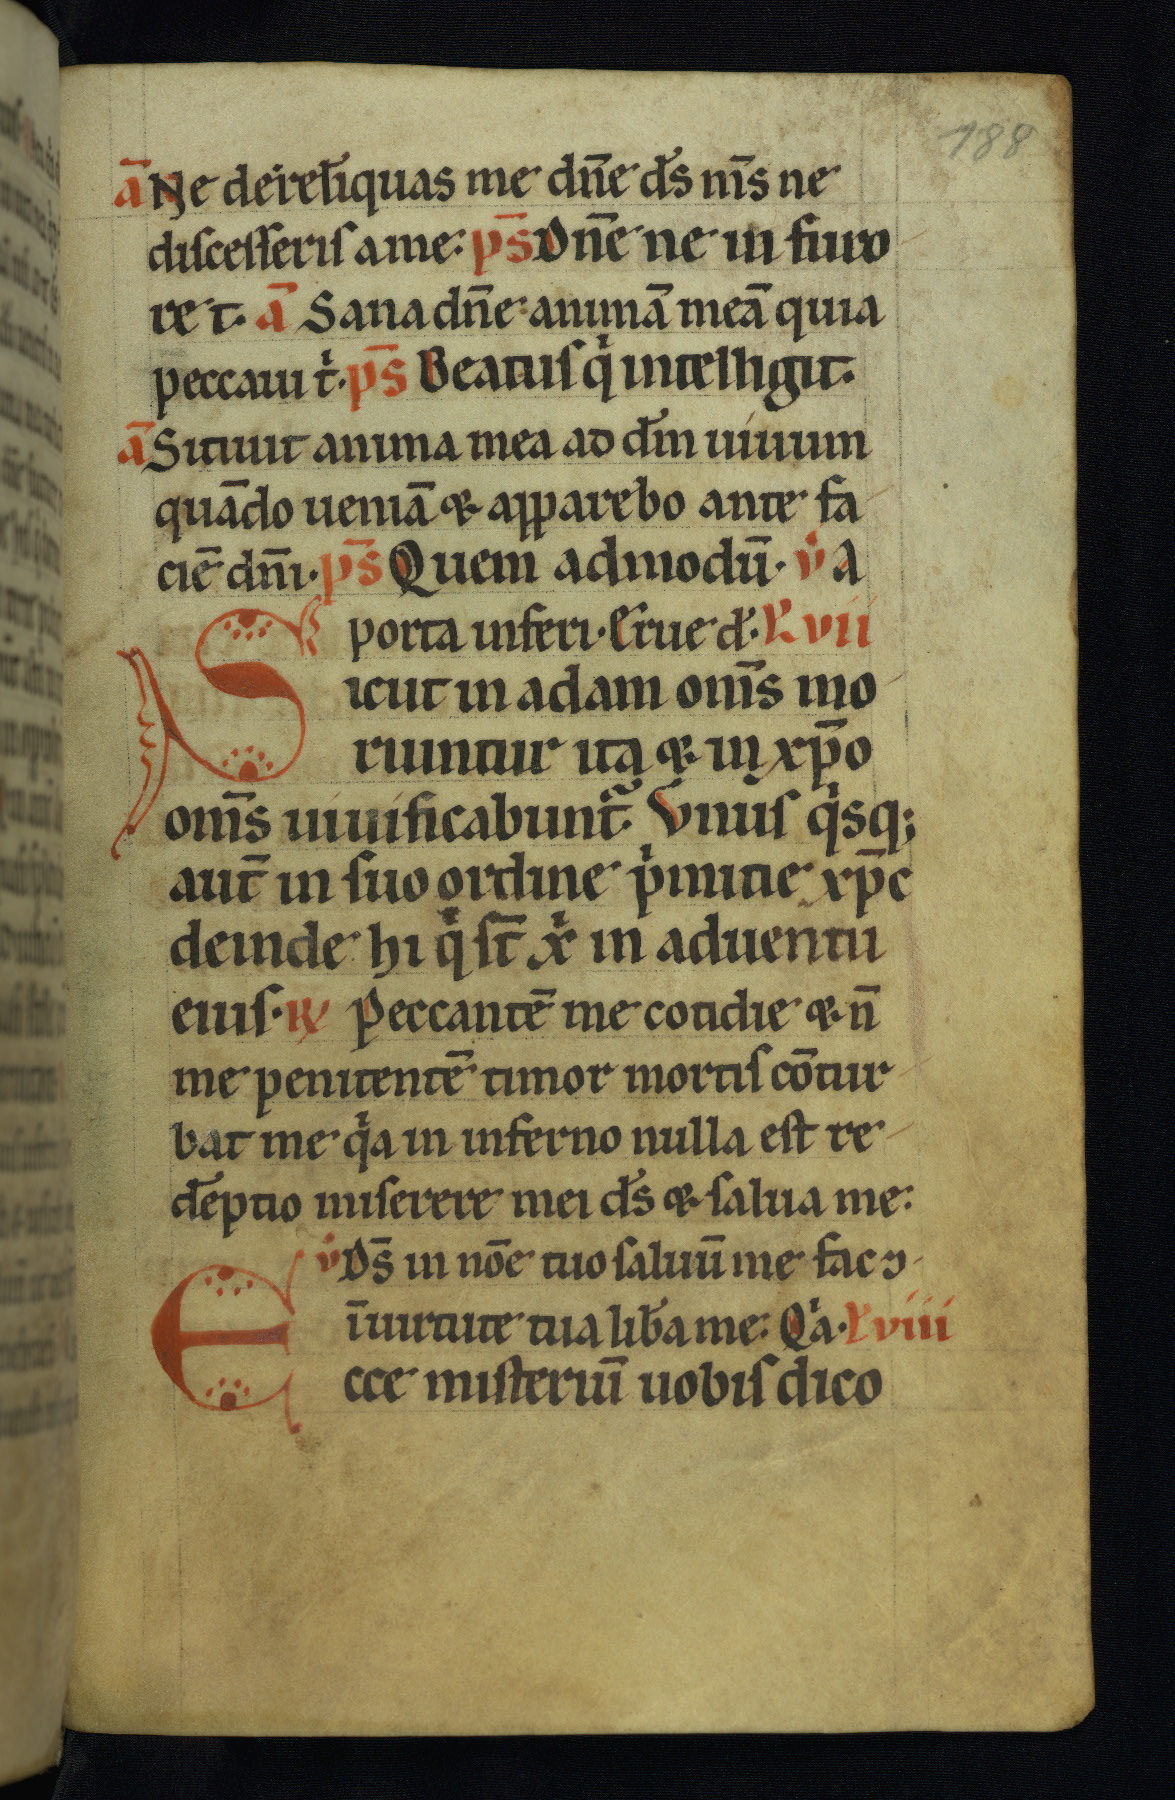 188
a̅ Ne derel̅iquas me dn̅e ds̅ nr̅s ne
disceſſeriſ a me: ps̅ Dn̅e ne in furo
re t. a̅ Sana dn̅e animā meā quia
peccaui ṫ. ps̅ Beatuſ qͥ intelligit.
a̅ Sitiuit anima mea ad dm̅ uiuum
quādo ueniā & apparebo ante fa
ciē dn̅i. ps̅ Quem admodū. v̇ A
porta inferi. Erue d̅. L̅ vii
Sicut in adam oms̅ mo
riuntur ita & in xp̅o
oms̅ uiuificabunt᷑. Vnuſ qͥsq;
aut̅ in ſuo ordine pͥmitie xp̅c
deinde hi qͥ ſt̅ xͥ in aduentu
eiuſ. R̷ Peccantē me cotidie & n̅
me penitentē timor mortiſ cōtur
bat me qͥa in inferno nulla eſt re
dēptio miſerere mei ds̅ & ſalua me:
v̇ Ds̅ in nōe tuo ſaluū me fac ꝛ
ī uirtute tua lib̅a me: Qͥa. L̅ viii
Ecce miſteriū uobiſ dico